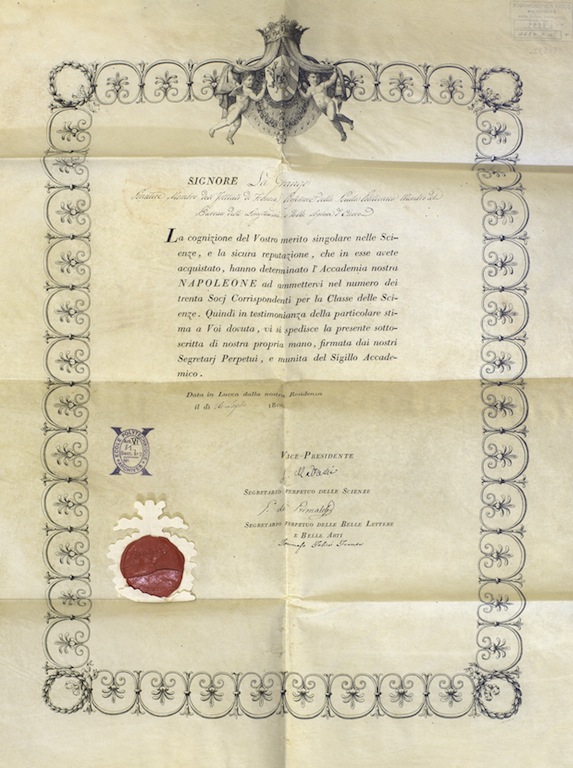 SIGNORE La Grange
Senatore Membro dell' Istituto di Francia, Professore della Scuola Politecnica Membro del
Bureau delle Longitudini
La cognizione del Vostro merito singolare nelle Sci-
enze, e la sicura reputazione, che in esse avete
acquistato, hanno determinato l'Accademia nostra
NAPOLEONE ad ammettervi nel numero dei
trenta Socj Corrispondenti per la Classe delle Sci-
enze. Quindi in testimonianza della particolare sti-
ma a Voi dovuta, vi si spedisce la presente sotto-
scritta di nostra propria mano, firmata dai nostri
Segretarj Perpetui, e munita del Sigillo Accade-
mico.
Data in Lucca dalla nostra Residenza
il dì
ECOLE POLYTECH
VICE-PRESIDENTE
SEGRETARIO PERPETUO DELLE SCIENZE
SEGRETARIO PERPETUO DELLE BELLE LETTERE
E BELLE ARTI